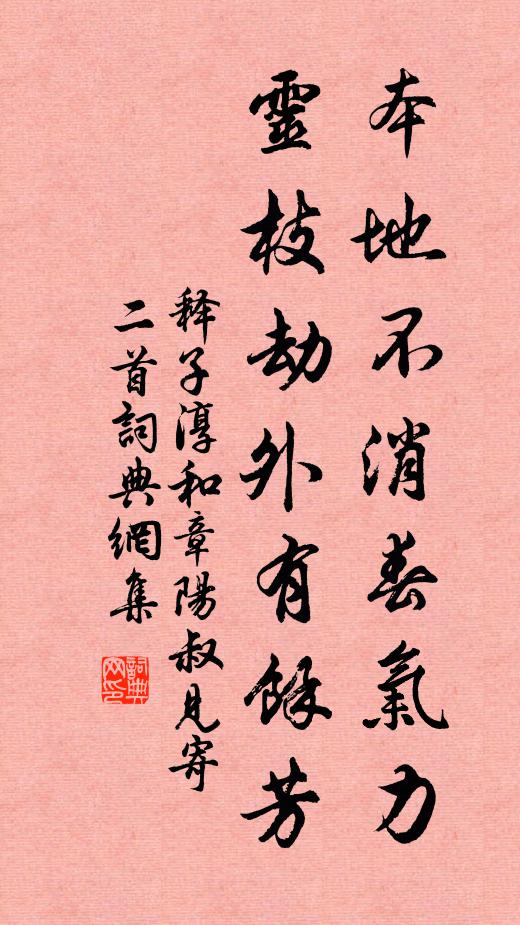 本地不消春氣力
靈枝劫外有餘芳
释子淳和章陽叔見寄
二首詞典網集
詞典網印